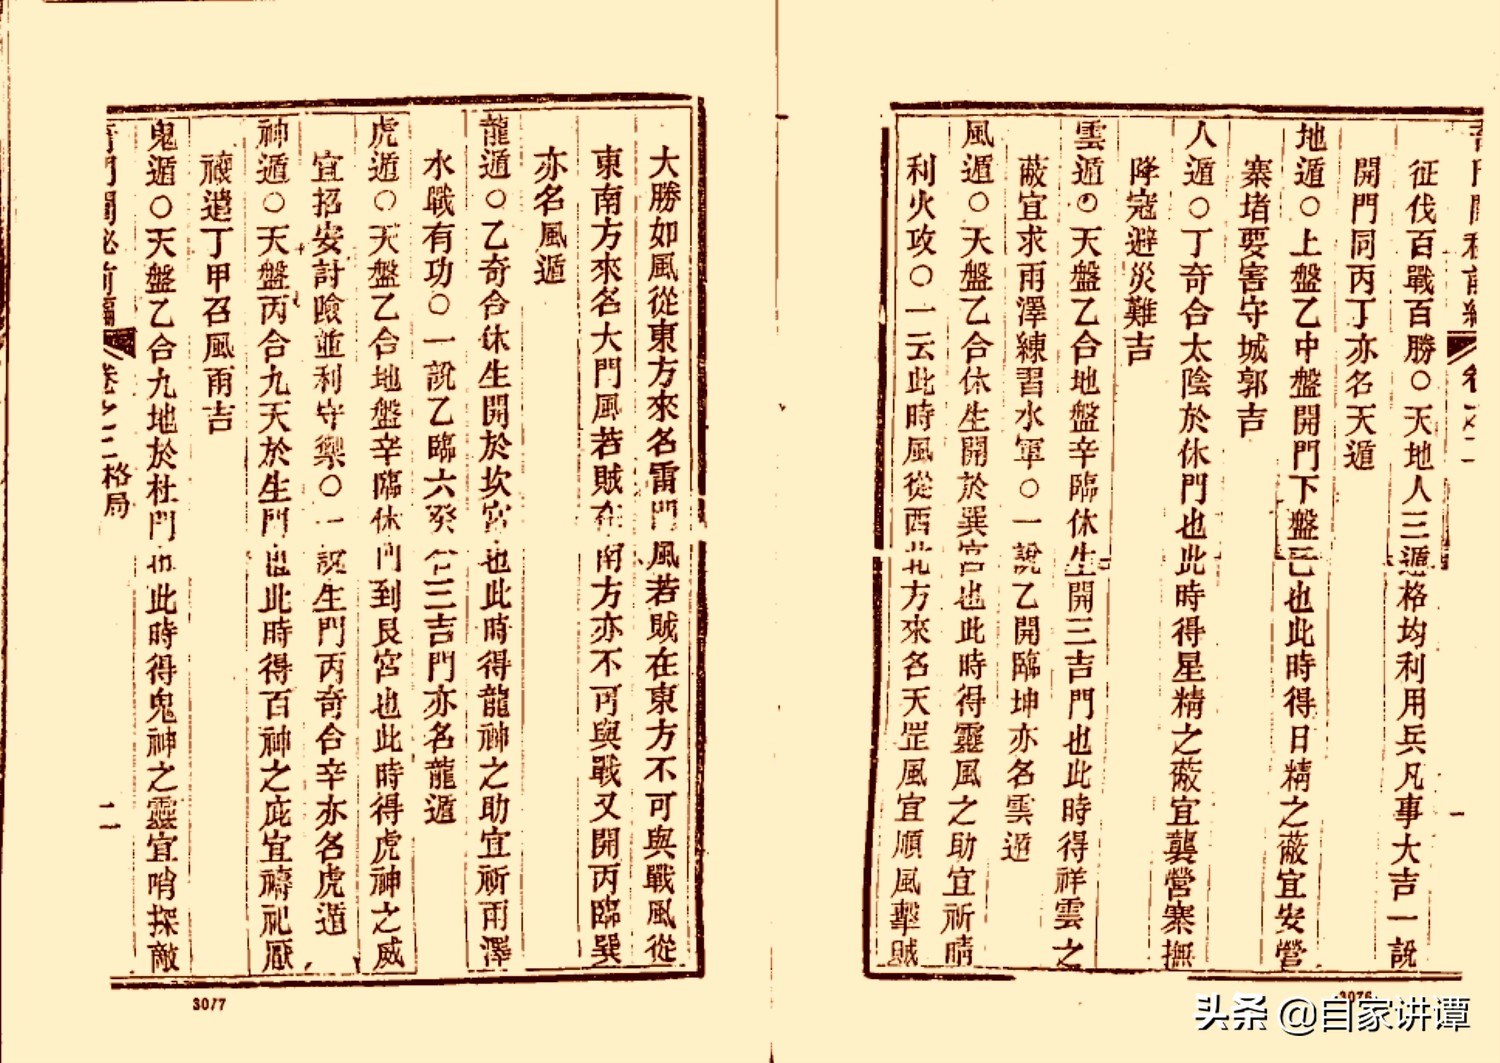 征伐百戰百勝○天地人三遁格均利用兵凡事大吉一說
開門同丙丁亦名天遁
地遁○上盤乙中盤開門下盤己也此時得日精之蔽宜安營
寨堵要害守城郭吉
人遁○丁奇合太陰於休門也此時得星精之蔽宜襲營寨撫
降寇避災難吉
雲遁○天盤乙合地盤辛臨休生開三吉門也此時得祥雲之
蔽宜求雨澤練習水軍○一說乙開臨坤亦名雲遁
風遁○天盤乙合休生開於巽宮也此時得靈風之助宜祈晴
利火攻○一云此時風從西北方來名天罡風宜順風擊賊
大勝如風從東方來名雷門風若賊在東方不可與戰風從
東南方來名大門風若賊在南方亦不可與戰又開丙臨巽
亦名風遁
龍遁○乙奇合休生開於坎宮也此時得龍神之助宜祈雨澤
水戰有功○一說乙臨六癸合三吉門亦名龍遁
虎遁○天盤乙合地盤辛臨休門到艮宮也此時得虎神之威
宜招安討險並利守禦○一說生門丙奇合辛亦名虎遁
神遁○天盤丙合九天於生門也此時得百神之庇宜禱祀厭
禳遣丁甲召風雨吉
鬼遁○天盤乙合九地於杜門也此時得鬼神之靈宜哨探敵
卷之二 格局
二
3077
3076
头条 @自家讲谭